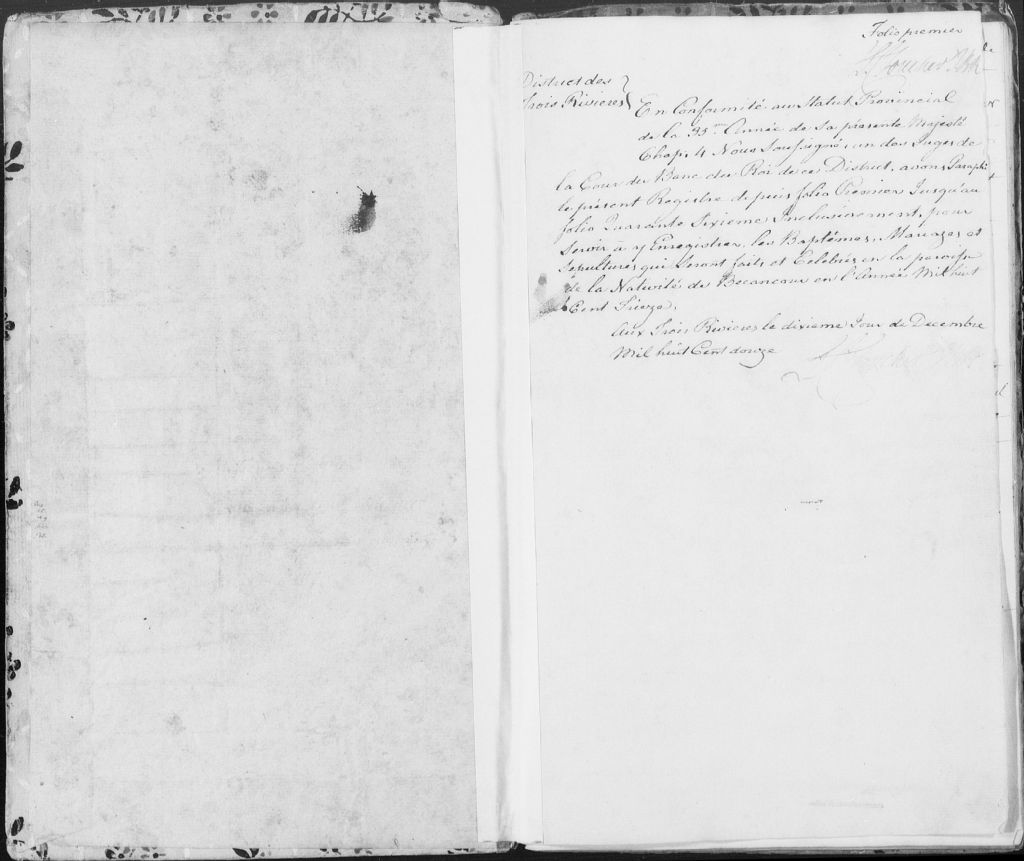 Folio premier
District des
Trois Rivieres
En Conformité au Statut Provincial
de la 35me Année de Sa présente Majesté
Chap. 4 Nous Soussigné, un des Juges de
la Cour du Banc du Roi de ce District, avons Paraphé
le présent Registre depuis folio Premier Jusqu'au
folio Quarante Sixieme Inclusivement, pour
Servir à y Enregistrer, les Baptêmes, Mariages et
Sepultures qui Seront faits et Celebrés en la paroisse
de la Nativité de Becancour en l'Année Mil huit
Cent Treize.
Aux Trois Rivieres le dixieme Jour de Decembre
Mil huit Cent douze